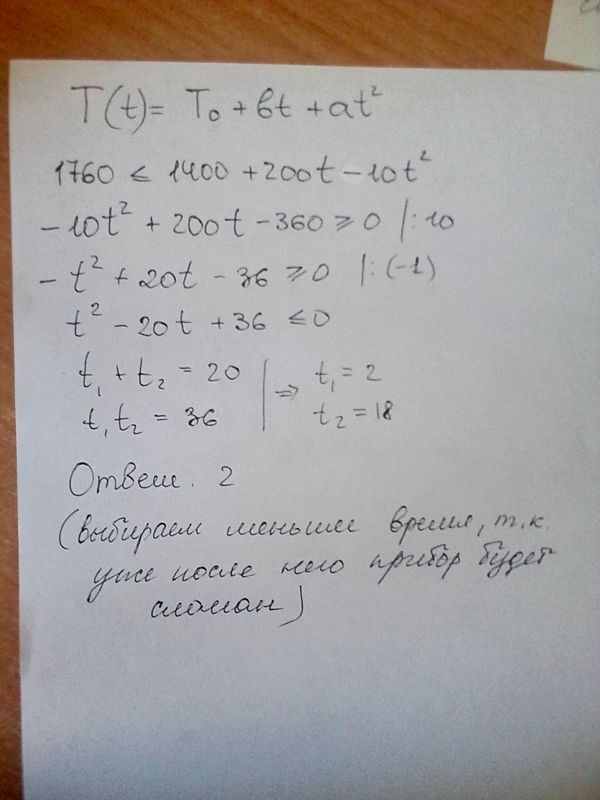 T(t)= T₀ + bt + at²
1760 ≤ 1400 + 200t - 10t²
-10t² + 200t - 360 ≥ 0 |: 10
- t² + 20t - 36 ≥ 0 |: (-1)
t² - 20t + 36 ≤ 0
t₁ + t₂ = 20 | ⇒ t₁ = 2
t₁t₂ = 36 | t₂ = 18
Ответ. 2
(выбираем меньшее время, т.к.
уже после него прибор будет
сломан)